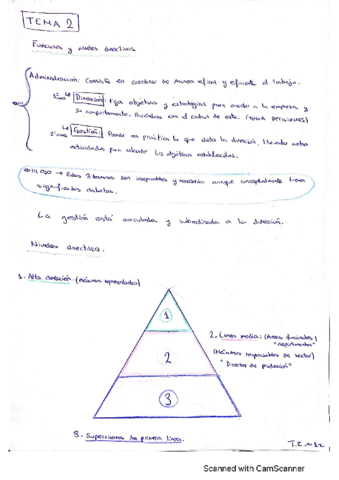 TEMA 2
Funciones y niveles directivos
Administración: Consiste en coordinar de manera eficaz y eficiente el trabajo.
1º Dirección: Fija objetivos y estrategias para a la empresa y
su comportamiento. con el control de esto. (TOMA DECISIONES)
2º Gestión: Poner en práctica lo que dicta la dirección, llevando
actividades para alcanzar los objetivos establecidos.
→ Estos 3 términos son inseparables y necesarios aunque conceptualmente
significados distintos.
La gestión está vinculada y subordinada a la dirección.
Niveles directivos.
1. Alta dirección (Máximos responsables)
1
2. Línea media: (Áreas funcionales)
"departamentos"
(Máximos responsables de sector)
"Director de producción"
2
3
3. Supervisores de primera línea.
Scanned with CamScanner